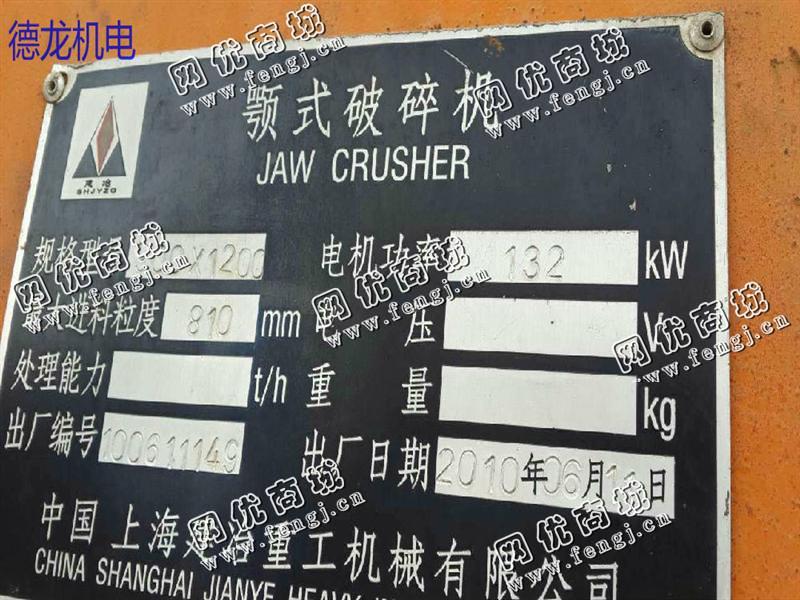 德龙机电
颚式破碎机
JAW CRUSHER
SHJYZG
规格型 X1200
电机功率 132 kW
最大进料粒度 810 mm
压 V
处理能力 t/h
重量 kg
出厂编号 100611149
出厂日期 2010年06月11日
中国上海建冶重工机械有限公司
CHINA SHANGHAI JIANYE HEAVY
网优商城
www.fengj.cn
网优商城
www.fengj.cn
网优商城
www.fengj.cn
网优商城
www.fengj.cn
网优商城
www.fengj.cn
网优商城
www.fengj.cn